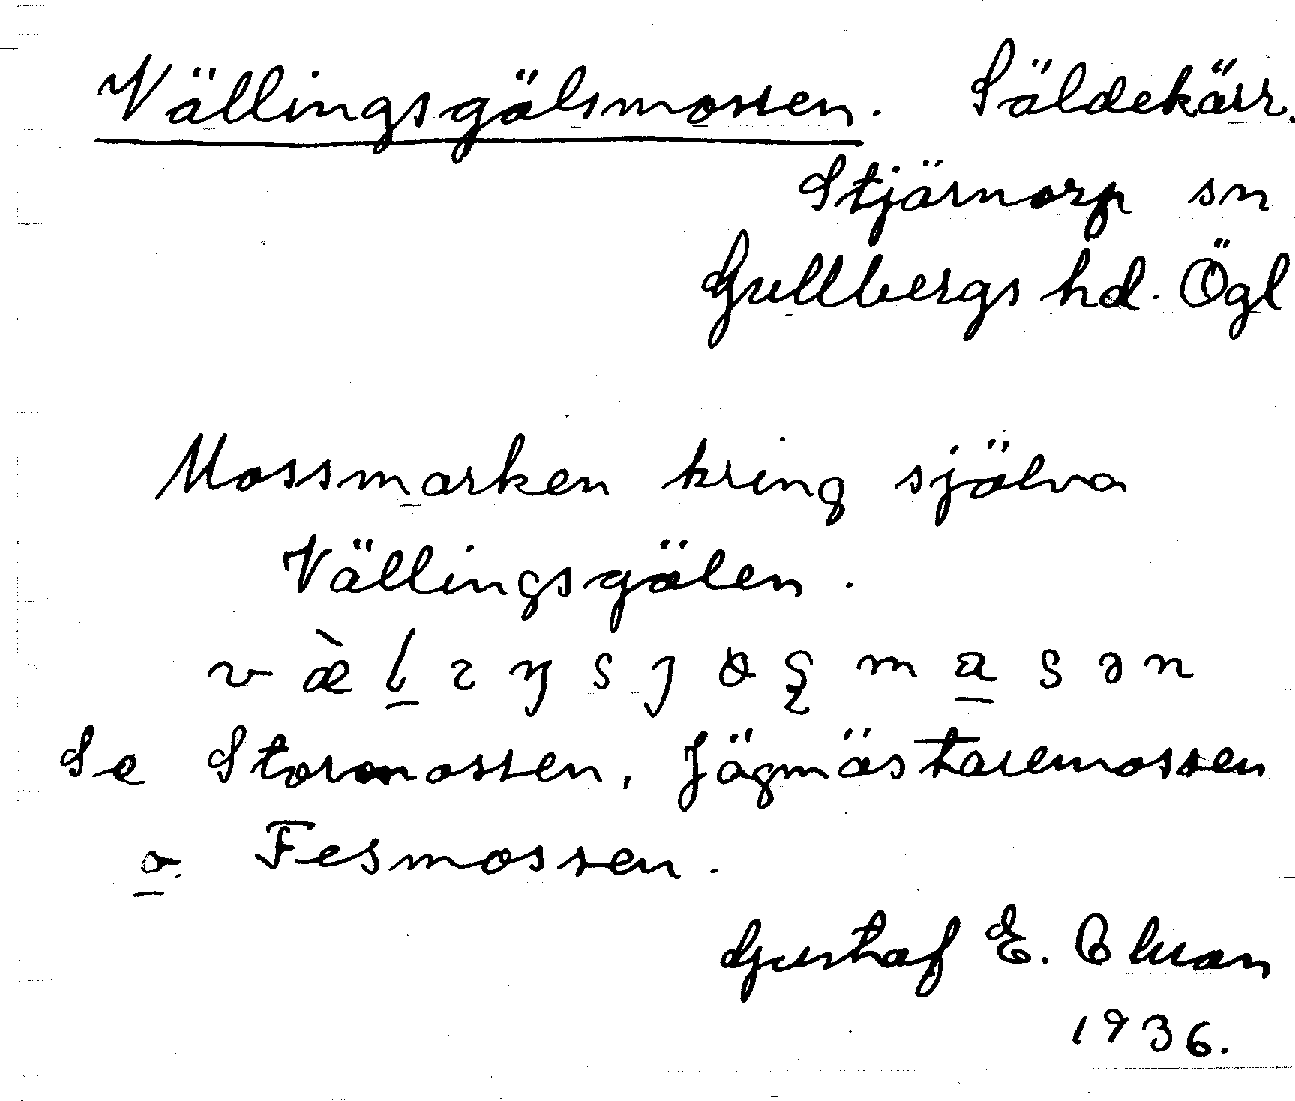 Vällingsgölsmossen. Säldekärr.
Stjärnorp sn
Gullbergs hd. Ögl
Mossmarken kring själva
Vällingsgölen.
Se Stormossen, Jägmästaremossen
o. Fesmossen.
Gustaf E.
1936.